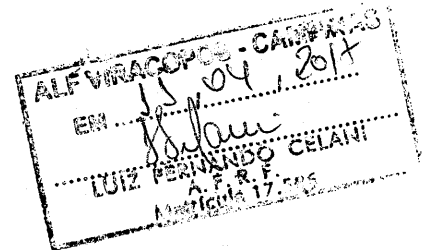 ALF VIRACOPOS - CAMPINAS
EM 04, 2017
LUIZ FERNANDO CELANI
A. F. R. F.
Matrícula 17.